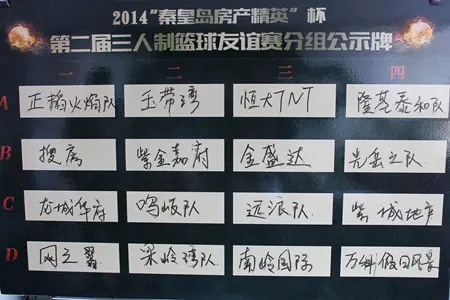 2014“秦皇岛房产精英”杯
第二届三人制篮球友谊赛分组公示牌
一 二 三 四
A 正韬火焰队 玉带湾 恒大TNT 隆基泰和队
B 搜房 紫金嘉府 金盛达 之队
C 龙城华府 鸣岐队 远派队 紫城地产
D 网之翼 梁岭湾队 南岭国际 假日风景